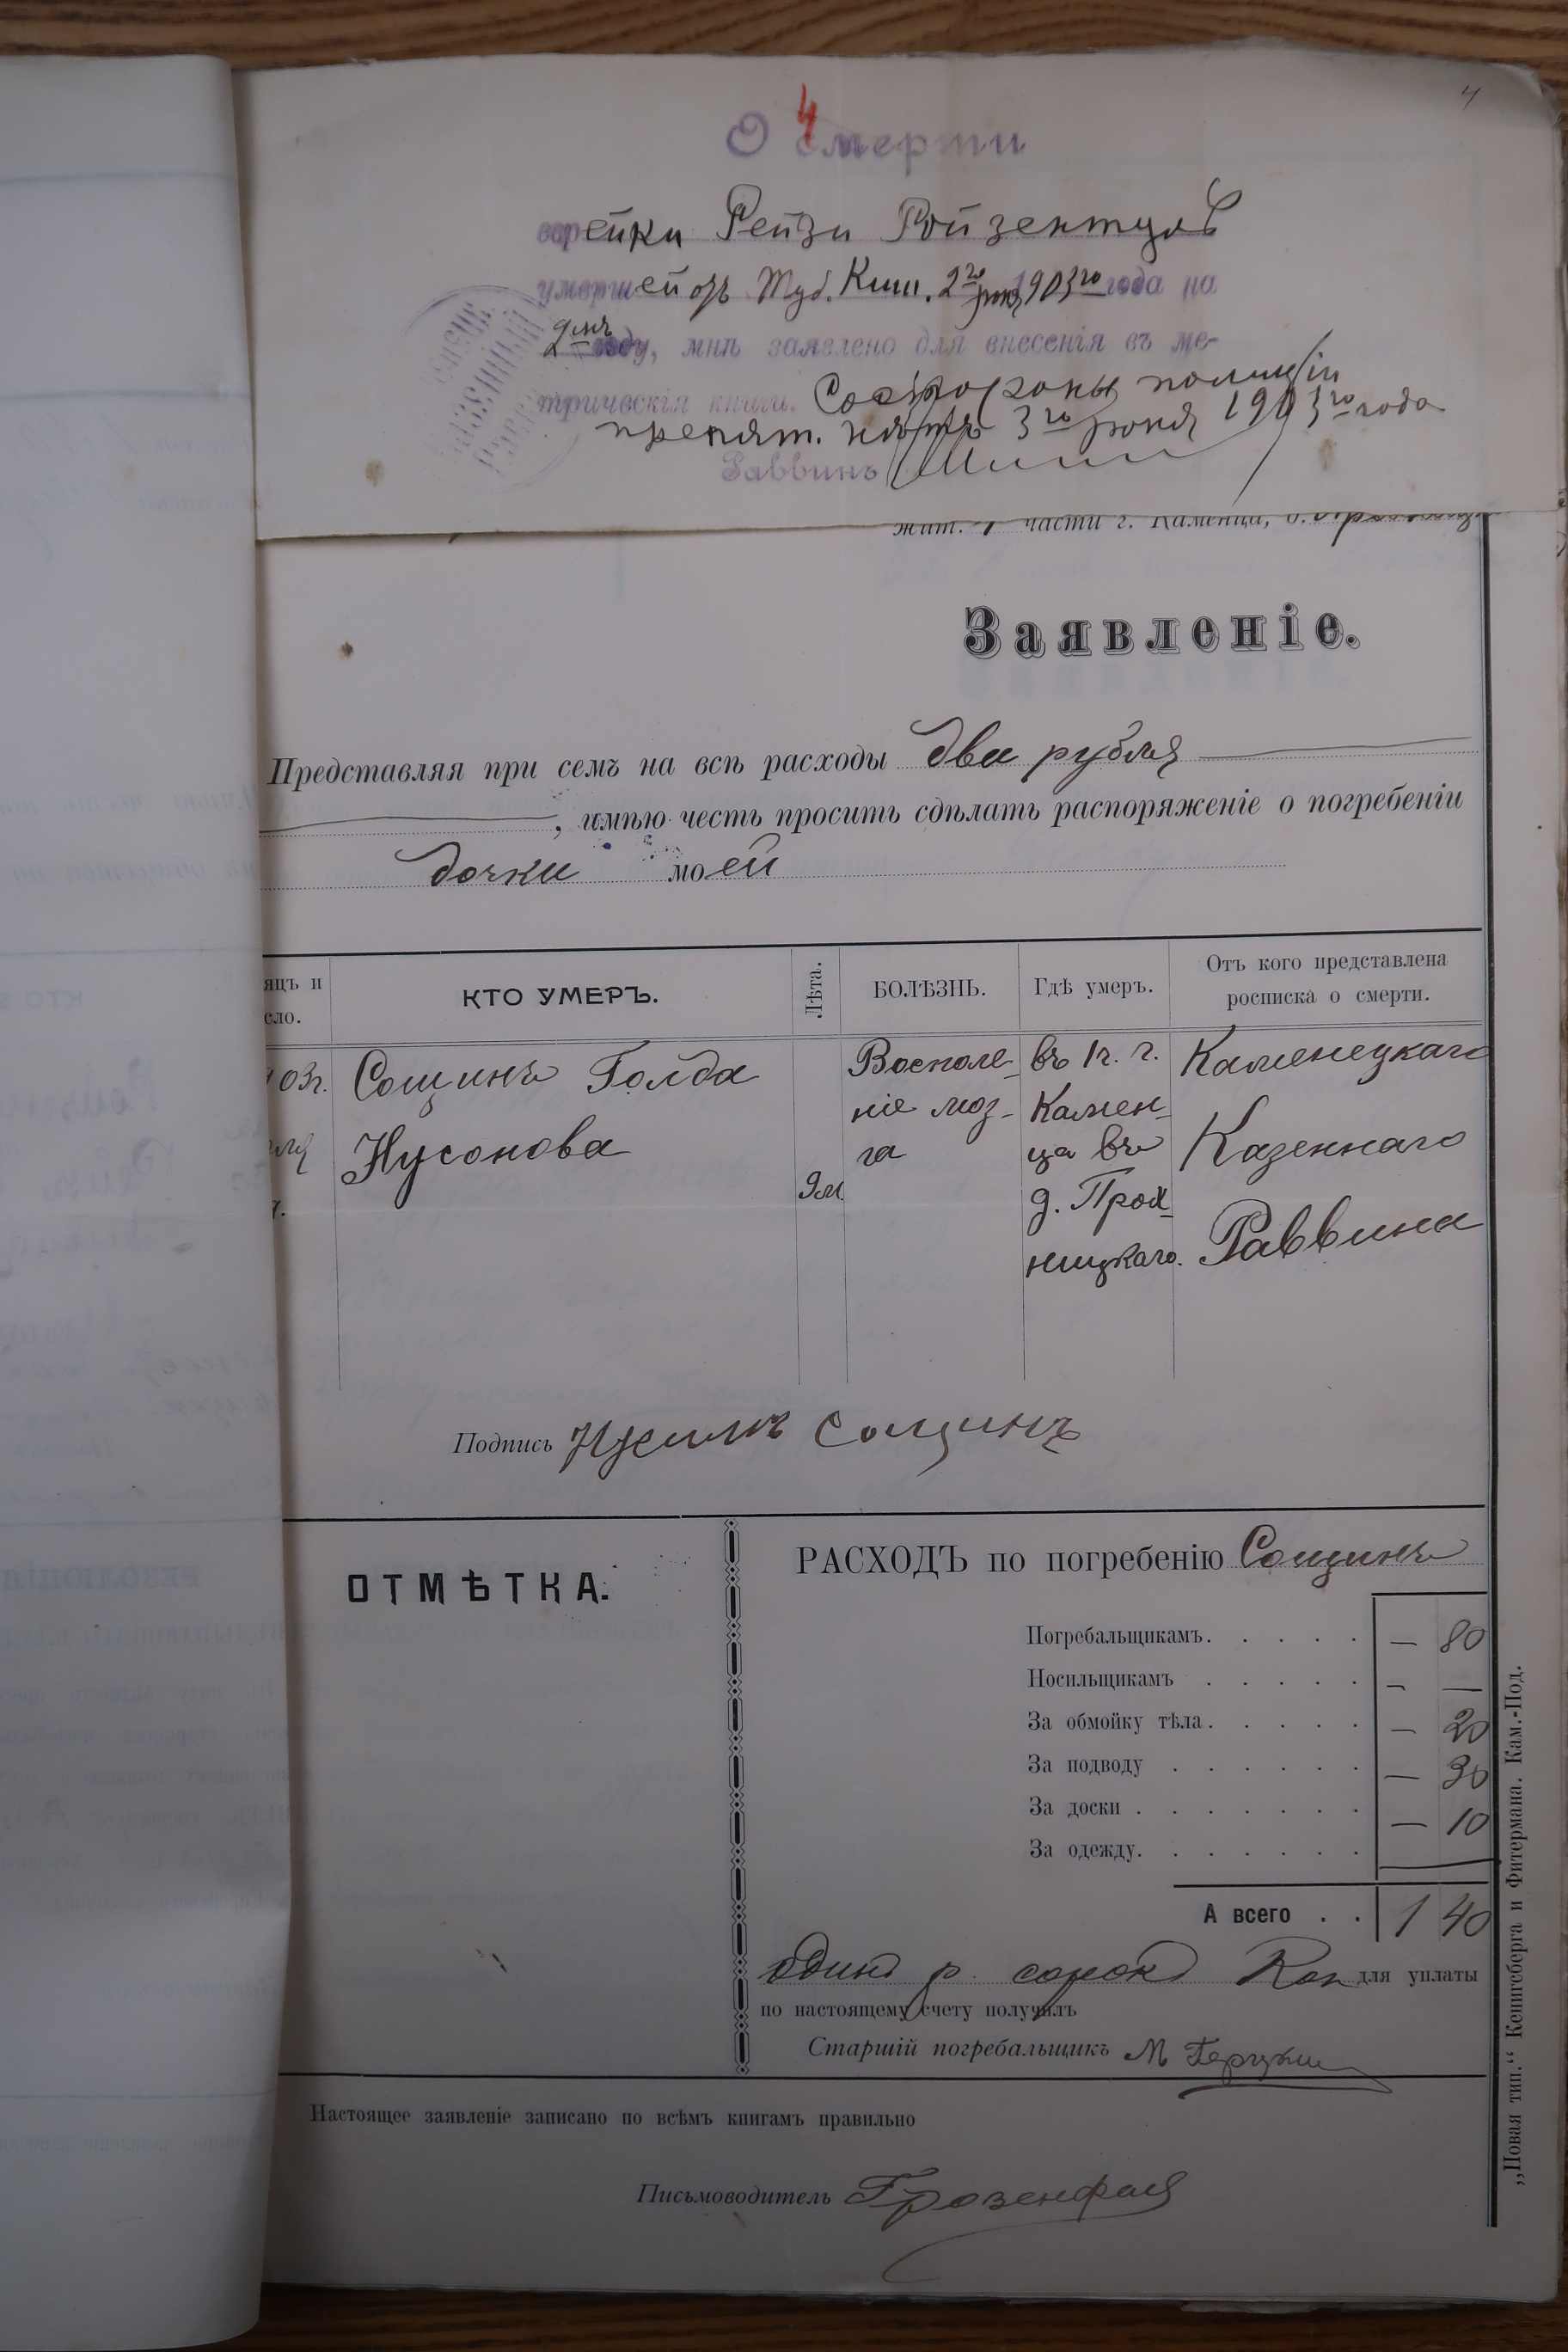 4
4
О смерти
еврейки Рейзи Ройзентул
умершей отъ Туб. Киш. 2го 1903го года на
2 году, мнѣ заявлено для внесенія въ ме-
трическія книги. Со стороны полиціи
препят. нѣтъ 3го 1903го года
Раввинъ
КАЗЕННЫЙ
жит. 1 части г. Каменца, д.
Заявленіе.
Представляя при семъ на всѣ расходы два рубля
, имѣю честь просить сдѣлать распоряженіе о погребеніи
дочки моей
яцъ и
сло.
КТО УМЕРЪ.
Лѣта.
БОЛѢЗНЬ.
Гдѣ умеръ.
Отъ кого представлена
росписка о смерти.
03г. Сощинъ Голда
Нусонова
9м.
Воспале-
ніе моз-
га
въ 1ч. г.
Камен-
ца въ
д. Прох-
ницкаго.
Каменецкаго
Казеннаго
Раввина
Подпись Сощинъ
ОТМѢТКА.
РАСХОДЪ по погребенію Сощинъ
Погребальщикамъ. . . . . — 80
Носильщикамъ . . . . . — —
За обмойку тѣла. . . . . — 20
За подводу . . . . . . — 30
За доски . . . . . . . — 10
За одежду. . . . . . .
А всего . . 1 40
один р. сорок Коп для уплаты
по настоящему счету получилъ
Старшій погребальщикъ М
Настоящее заявленіе записано по всѣмъ книгамъ правильно
Письмоводитель
„Новая тип.“ Кенигсберга и Фитермана. Кам.-Под.